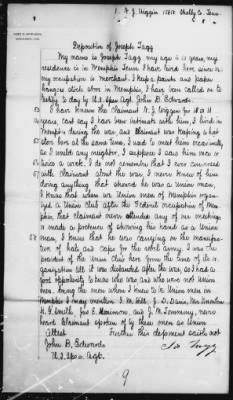 Deposition of Joseph Tagg
My name is Joseph Tagg, my age is 51 years, my
residence is in Memphis Tenn. I have lived here since
my occupation is Merchant. I keep a paints and paper
hangings store here in Memphis, I have been called on to
testify to day by U.S. Spec. Agt. John D. Edwards.
I have known the Claimant
years, cant say I have been intimate with him, I lived in
Memphis during the war, and claimant was keeping a hat
store here at the same time, I used to meet him occasionally
as I would any neighbor, I suppose I saw him once or
twice a week. I do not remember that I ever conversed
with claimant about the war, I never knew of him
doing anything that showed he was a Union man,
I know that when we Union men of Memphis organ-
ized a Union Club after the Federal occupation of Mem-
phis, that claimant never attended any of our meetings
or made a pretense of showing his hand as a Union
man, I knew that he was carrying on the manufac-
ture of hats and caps for the rebel army. I was the
president of the Union Club here from the time of its or-
ganization till it was disbanded after the war, so I had a
good opportunity to know who was and who were not Union
men. Among the men whom I knew to be Union men in
Memphis I may mention
H. G. Smith,
heard Claimant spoken of by these men as Union
Attest Further this deponent saith not
John D. Edwards
U.S. Spec. Agt.
Jos Tagg
9